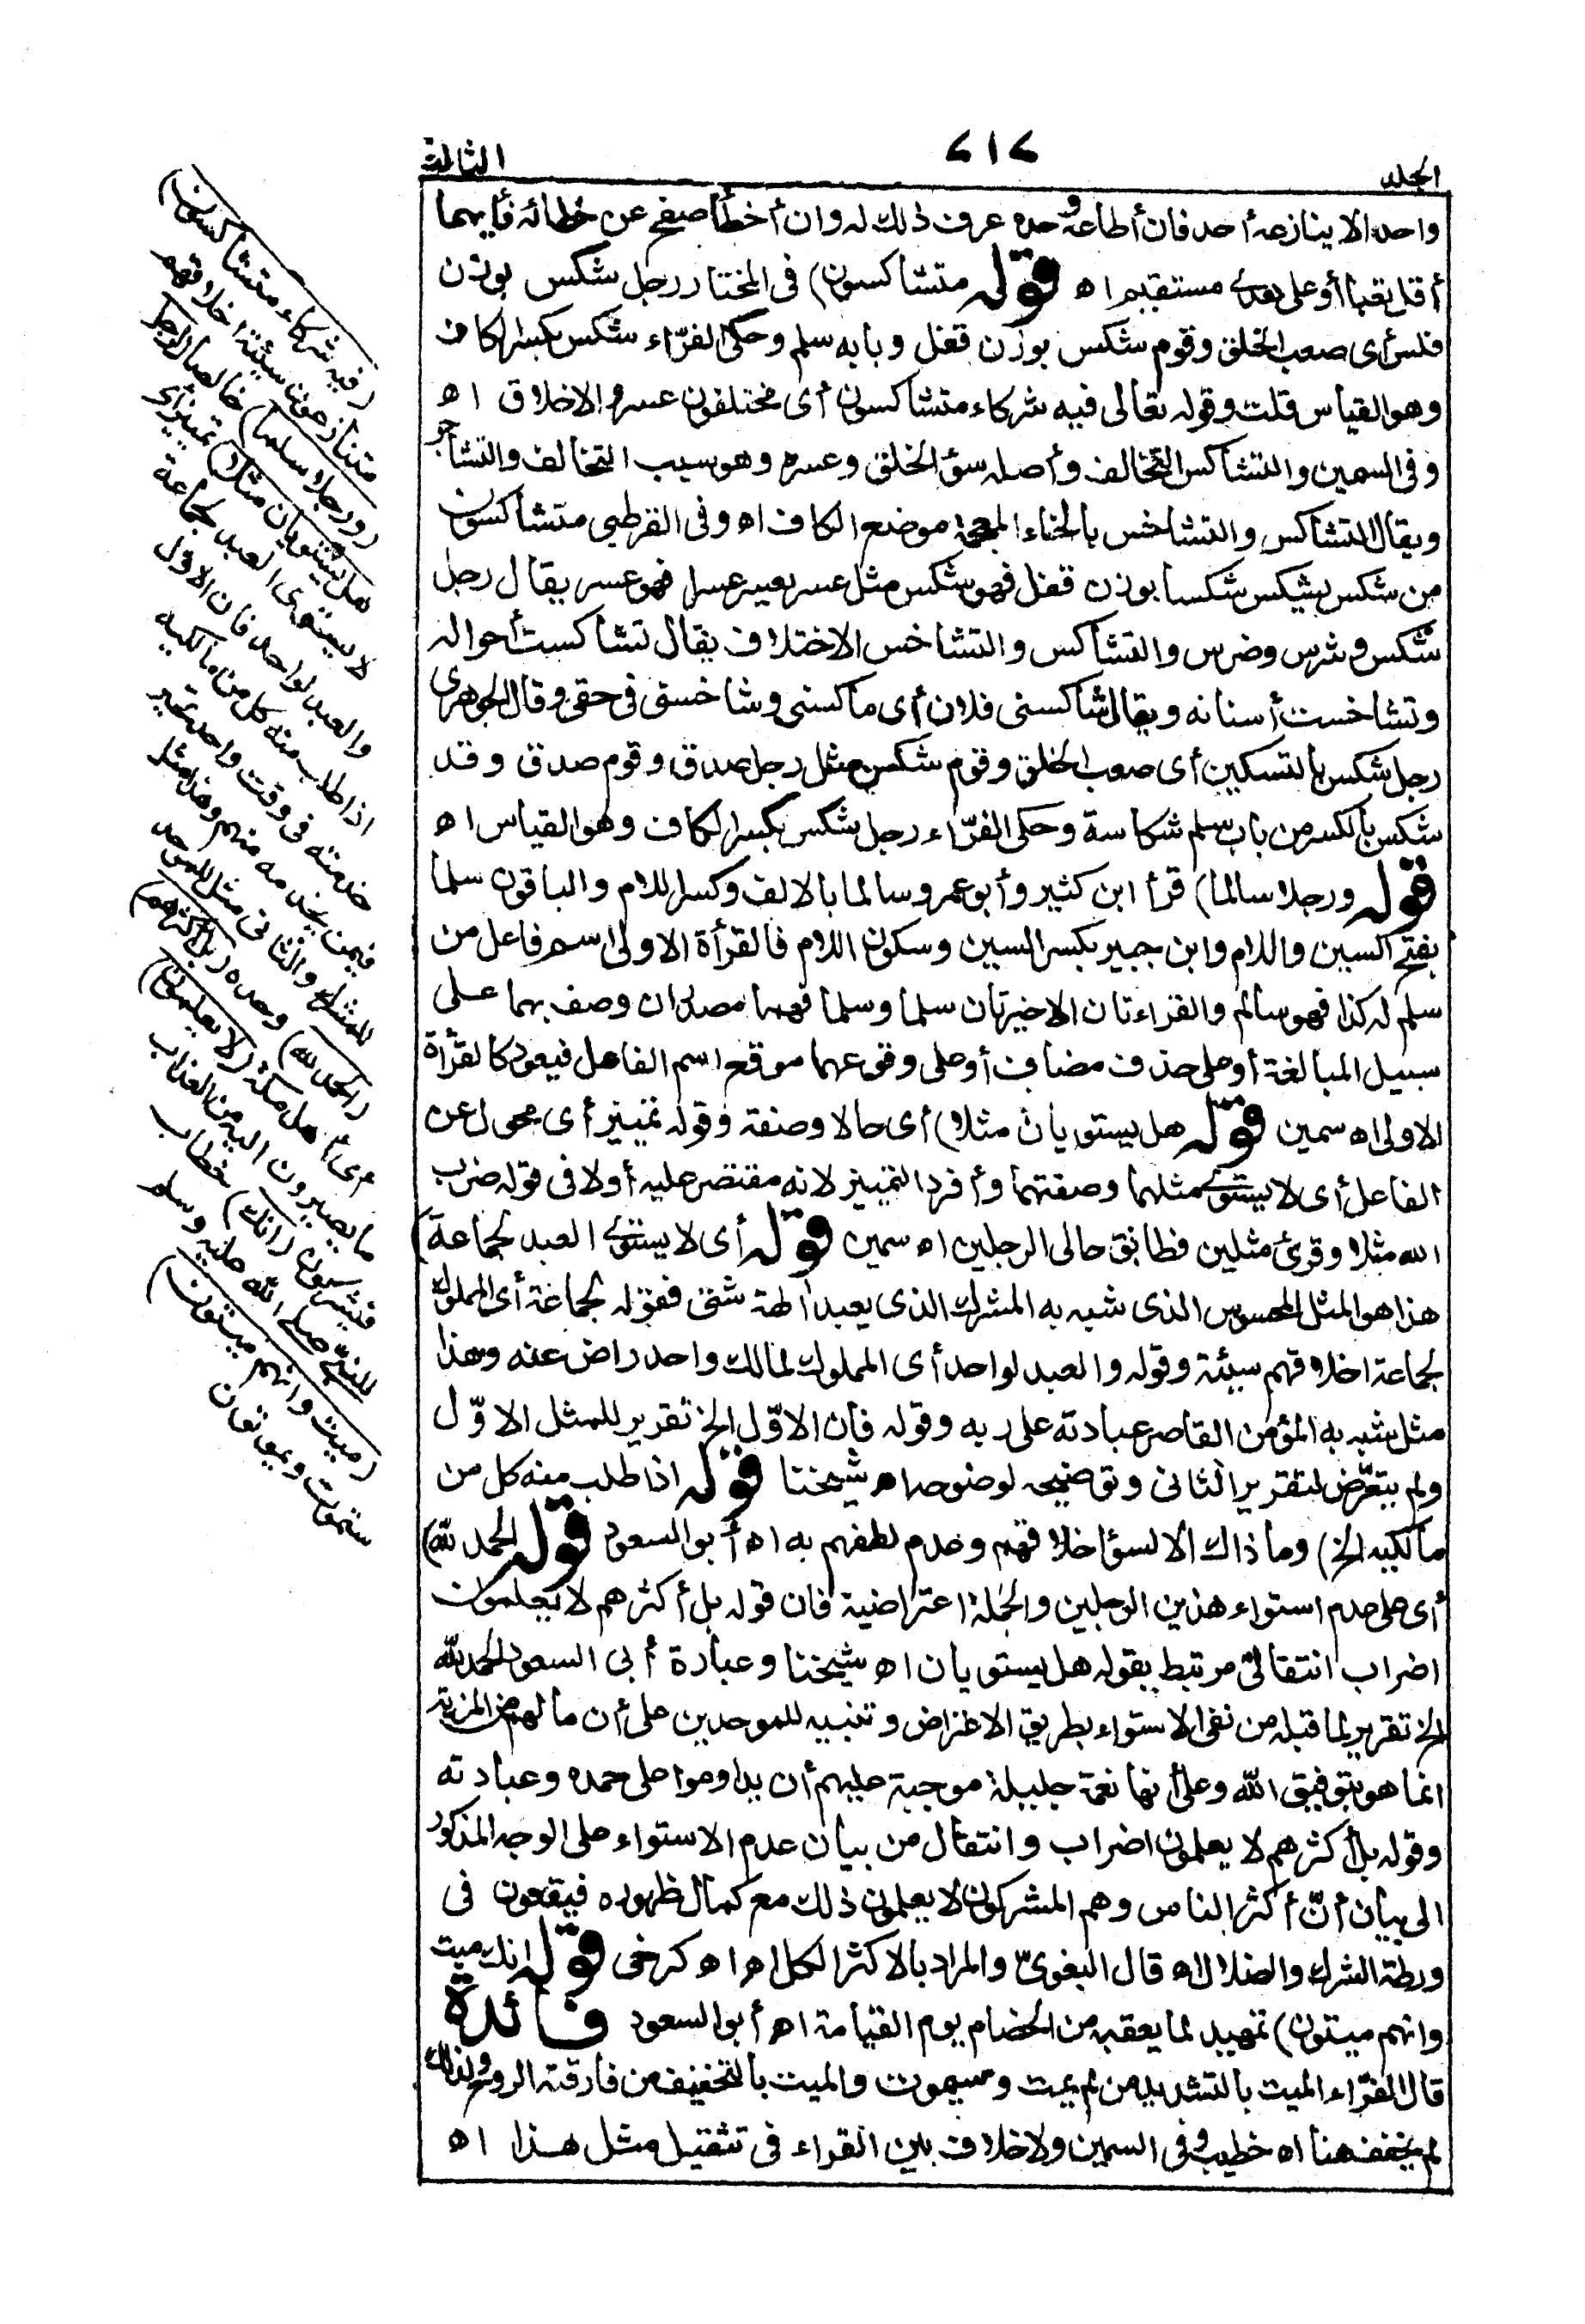 الجلد
٧١٧
الثالث
واحد الا ينازعه أحد فان أطاعه وحده عرف ذلك له وان أخطأ صفح عن خطائه فأيهما
أقل تعبا أو على هدى مستقيم اه قوله متشاكسون) فى المختار رجل شكس بوزن
فلس أى صعب الخلق وقوم شكس بوزن قفل وبابه سلم وحكى الفرّاء شكس بكسر الكاف
وهو القياس قلت وقوله تعالى فيه شركاء متشاكسون أى مختلفون عسرو الاخلاق اه
وفى السمين والتشاكس التخالف وأصله سؤ الخلق وعسره وهو سبب التخالف والتشاجر
ويقال التشاكس والتشاخس بالخاء المعجمة موضع الكاف اه وفى القرطبى متشاكسون
من شكس يشكس شكسا بوزن قفل فهو شكس مثل عسر يعسر عسرا فهو عسر يقال رجل
شكس وشرس وضرس والتشاكس والتشاخس الاختلاف يقال تشاكست أحواله
وتشاخست أسنانه ويقال شاكسنى فلان أى ماكسنى وشاخسنى فى حقى وقال الجوهرى
رجل شكس بالتسكين أى صعب الخلق وقوم شكس مثل رجل صدق وقوم صدق وقد
شكس بالكسر من باب سلم شكاسة وحكى الفرّاء رجل شكس بكسر الكاف وهو القياس اه
قوله ورجلا سالما) قرأ ابن كثير وأبو عمرو سالما بالالف وكسر اللام والباقون سلما
بفتح السين واللام وابن جبير بكسر السين وسكون اللام فالقرأة الاولى اسم فاعل من
سلم له كذا فهو سالم والقراءتان الاخيرتان سلما وسلما فهما مصدران وصف بهما على
سبيل المبالغة أو على حذف مضاف أو على وقوعهما موقع اسم الفاعل فيعود كالقرأة
الاولى اه سمين قوله هل يستويان مثلا) أى حالا وصفة وقوله تمييز أى محول عن
الفاعل أى لا يستوى مثلهما وصفتهما وأفرد التمييز لانه مقتصر عليه أولا فى قوله ضرب
الله مثلا وقرئ مثلين فطابق حالى الرجلين اه سمين قوله أى لا يستوى العبد لجماعة)
هذا هو المثل المحسوس الذى شبه به المشرك الذى يعبد الهة شتى فقوله لجماعة أى المملوك
لجماعة اخلاقهم سيئة وقوله والعبد لواحد أى المملوك لمالك واحد راض عنه وهذا
مثل شبه به المؤمن القاصر عبادته على ربه وقوله فان الاوّل الخ تقرير للمثل الاوّل
ولم يتعرّض لتقرير الثانى وتوضيحه لوضوحه اه شيخنا قوله اذا طلب منه كل من
مالكيه الخ) وما ذاك الا لسؤ اخلاقهم وعدم لطفهم به اه أبو السعود قوله الحمد لله)
أى على عدم استواء هذين الرجلين والجملة اعتراضية فان قوله بل أكثرهم لا يعلمون
اضراب انتقالىّ مرتبط بقوله هل يستويان اه شيخنا وعبارة أبى السعود الحمد لله
الخ تقرير لما قبله من نفى الاستواء بطريق الاعتراض وتنبيه للموحدين على أن ما لهم من المزية
انما هو بتوفيق الله وعلى أنها نعمة جليلة موجبة عليهم أن يداوموا على حمده وعبادته
وقوله بل أكثرهم لا يعلمون اضراب وانتقال من بيان عدم الاستواء على الوجه المذكور
الى بيان أنّ أكثر الناس وهم المشركون لا يعلمون ذلك مع كمال ظهوره فيقعون فى
ورطة الشرك والضلال اه قال البغوىّ والمراد بالاكثر الكل اه اه كرخى قوله انك ميت
وانهم ميتون) تمهيد لما يعقبه من الخصام يوم القيامة اه أبو السعود فائدة
قال الفرّاء الميت بالتشديد من لم يمت وسيموت والميت بالتخفيف من فارقته الروح ولذلك
لم يخفف هنا اه خطيب وفى السمين ولا خلاف بين القراء فى تثقيل مثل هذا اه
(فيه شركاء متشاكسون)
متنازعون سيئة اخلاقهم
(ورجلا سلما) خالصا (لرجل
هل يستويان مثلا) تمييز أى
لا يستوى العبد لجماعة
والعبد لواحد فان الاول
اذا طلب منه كل من مالكيه
خدمته فى وقت واحد تحير
فيمن يخدمه منهم وهذا مثل
للمشرك والثانى مثل للموحد
(الحمد لله) وحده (بل أكثرهم)
أى أهل مكة (لا يعلمون)
ما يصيرون اليه من العذاب
فيشركون (انك) خطاب
للنبىّ صلى الله عليه وسلم
(ميت وانهم ميتون)
ستموت ويموتون